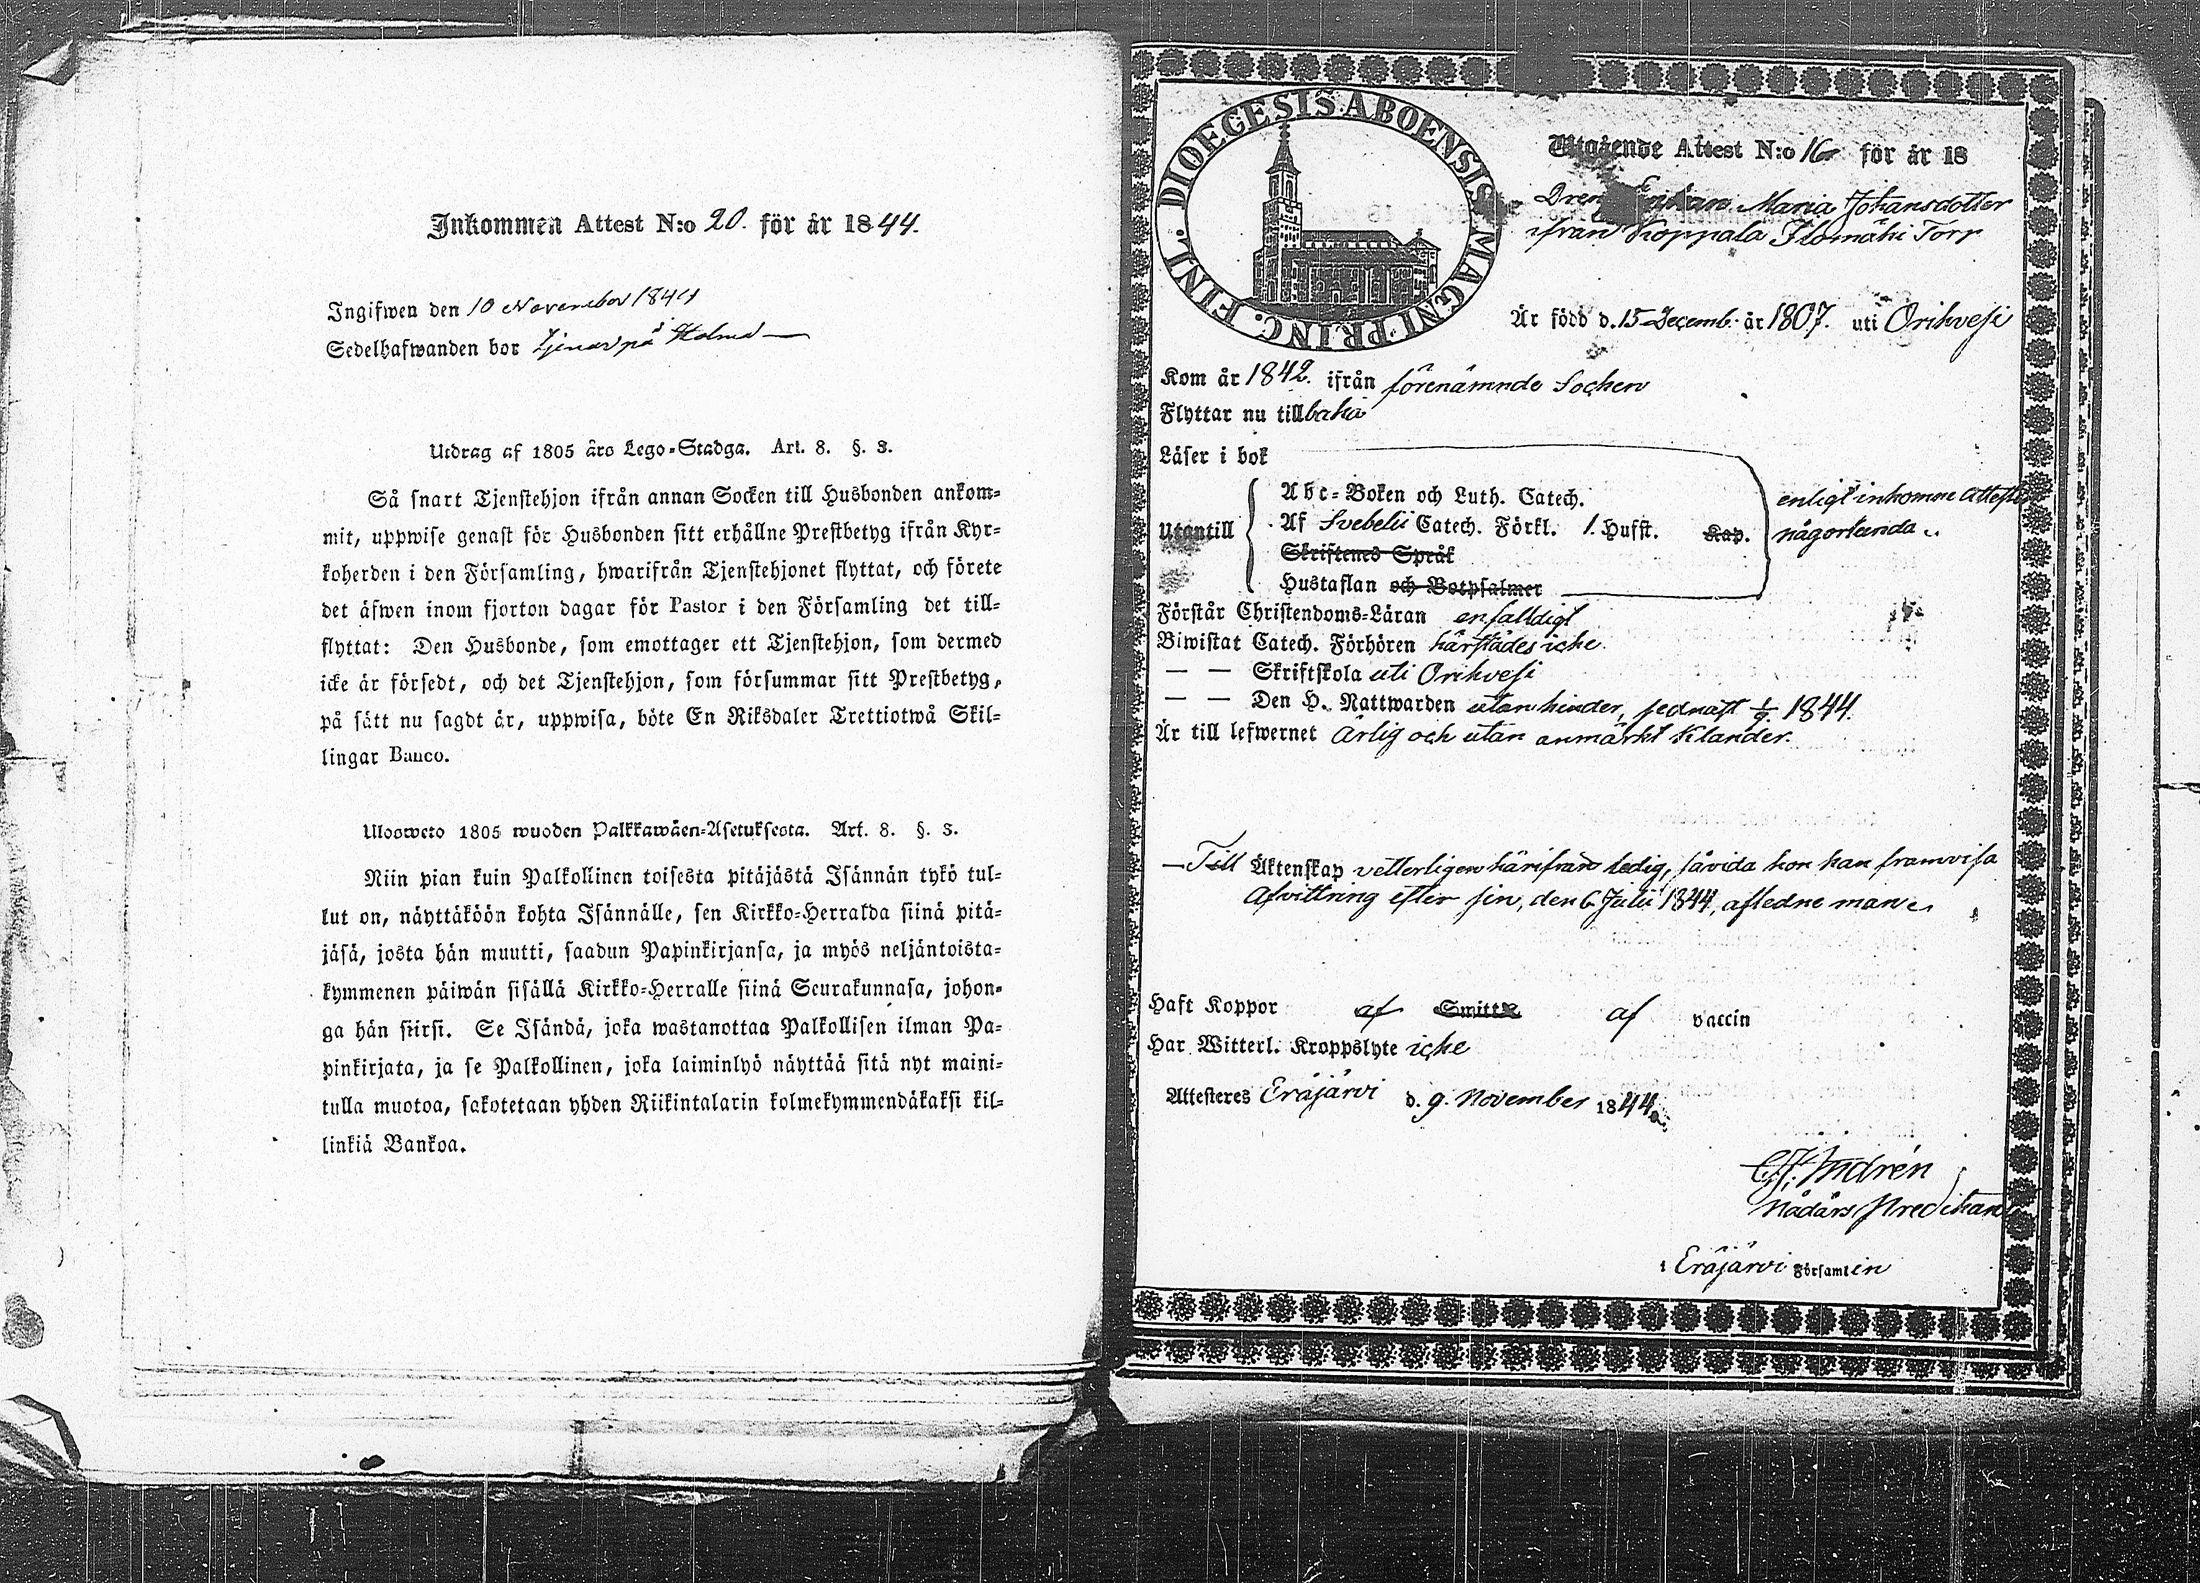 Inkommen Attest N:o 20. för år 1844.
Ingifwen den 10 November 1844
Sedelhafwanden bor tjenar på
Utdrag af 1805 års Lego-Stadga. Art. 8. §. 3.
Så snart Tjenstehjon ifrån annan Socken till Husbonden ankom-
mit, uppwise genast för Husbonden sitt erhållne Prestbetyg ifrån Kyr-
koherden i den Församling, hwarifrån Tjenstehjonet flyttat, och förete
det äfwen inom fjorton dagar för Pastor i den Församling det till-
flyttat: Den Husbonde, som emottager ett Tjenstehjon, som dermed
icke är försedt, och det Tjenstehjon, som försummar sitt Prestbetyg,
på sätt nu sagdt är, uppwisa, böte En Riksdaler Trettiotwå Skil-
lingar Banco.
Ulosweto 1805 wuoden Palkkawäen-Asetuksesta. Art. 8. §. 3.
Niin pian kuin Palkollinen toisesta pitäjästä Isännän tykö tul-
lut on, näyttäköön kohta Isännälle, sen Kirkko-Herralda siinä pitä-
jäsä, josta hän muutti, saadun Papinkirjansa, ja myös neljäntoista-
kymmenen päiwän sisällä Kirkko-Herralle siinä Seurakunnasa, johon-
ga hän siirsi. Se Isändä, joka wastanottaa Palkollisen ilman Pa-
pinkirjata, ja se Palkollinen, joka laiminlyö näyttää sitä nyt maini-
tulla muotoa, sakotetaan yhden Riikintalarin kolmekymmendäkaksi kil-
linkiä Bankoa.
DIOECESIS ABOENSIS MAGNI PRINC. FINL.
Utgående Attest N:o 16 för år 18
Enkan Maria Johansdotter
ifrån Koppala Ilomäki Torp
Är född d. 15 Decemb. år 1807. uti Orihvesi
Kom år 1842. ifrån förenämnde Socken
Flyttar nu tillbaka
Läser i bok
Abc-Boken och Luth. Catech.
enligt inkomne Attester
Utantill
Af Svebelii Catech. Förkl. 1. Hufst. Kap.
någorlunda
Skriftenes Språk
Hustaflan och Botpsalmer
Förstår Christendoms-Läran enfalldigt
Biwistat Catech. Förhören härstädes icke.
— — Skriftskola uti Orihvesi
— — Den H. Nattwarden utan hinder, sednast 1/9 1844.
Är till lefwernet Ärlig och utan anmärkt klander.
— Till Äktenskap vetterligen härifrån ledig, såvida hon kan framvisa
Afvittring efter sin, den 6 Julii 1844, aflidne man
Haft Koppor af Smitta af vaccin
Har Witterl. Kroppslyte icke
Attesteres Eräjärvi d. 9. November 1844
Indrén
Nådårs Predikant
i Eräjärvi Församl in